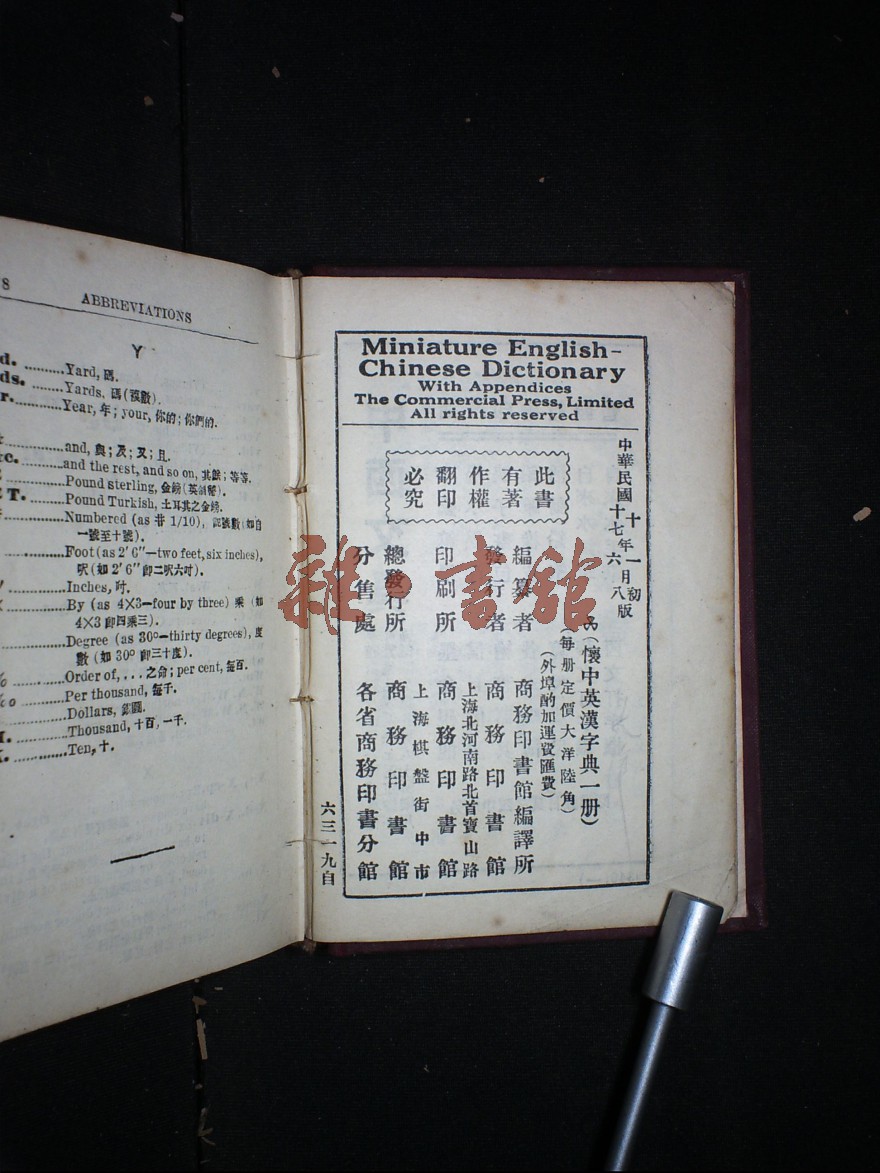 ABBREVIATIONS
Y
Yard, 碼.
Yards, 碼(複數).
Year, 年; your, 你的; 你們的.
and, 與; 及; 又; 且.
and the rest, and so on, 其餘; 等等.
Pound sterling, 金鎊(英諸幣).
T. Pound Turkish, 土耳其之金鎊.
Numbered (as # 1/10), 記號數(如自
一號至十號).
Foot (as 2' 6"—two feet, six inches),
呎(如 2' 6" 即二呎六吋).
Inches, 吋.
By (as 4×3—four by three) 乘 (如
4×3 即四乘三).
Degree (as 30°—thirty degrees), 度
數 (如 30° 即三十度).
Order of, ... 之命; per cent, 每百.
Per thousand, 每千.
Dollars, 銀圓.
Thousand, 十百, 一千.
Ten, 十.
Miniature English-
Chinese Dictionary
With Appendices
The Commercial Press, Limited
All rights reserved
此書
有著
作權
翻印
必究
中華民國十七年六
十一月初版
(懷中英漢字典一册)
(每册定價大洋陸角)
(外埠酌加運費匯費)
編纂者 商務印書館編譯所
發行者 商務印書館
上海北河南路北首寶山路
印刷所 商務印書館
上海棋盤街中市
總發行所 商務印書館
分售處 各省商務印書分館
六三一九自
雜·書館